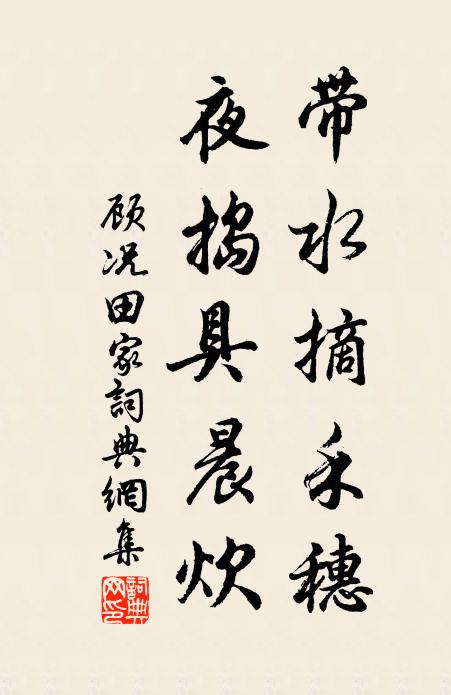 带水摘禾穗
夜捣具晨炊
顾况田家詞典網集
詞典網印